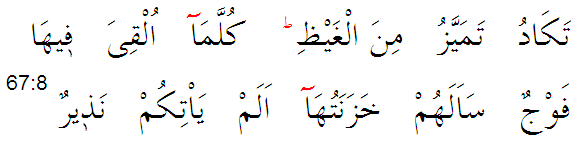 تَكَادُ تَمَيَّزُ مِنَ الْغَيْظِ ؕ كُلَّمَاۤ اُلْقِىَ فِيهَا
فَوْجٌ سَاَلَهُمْ خَزَنَتُهَاۤ اَلَمْ يَاْتِكُمْ نَذِيرٌ 67:8